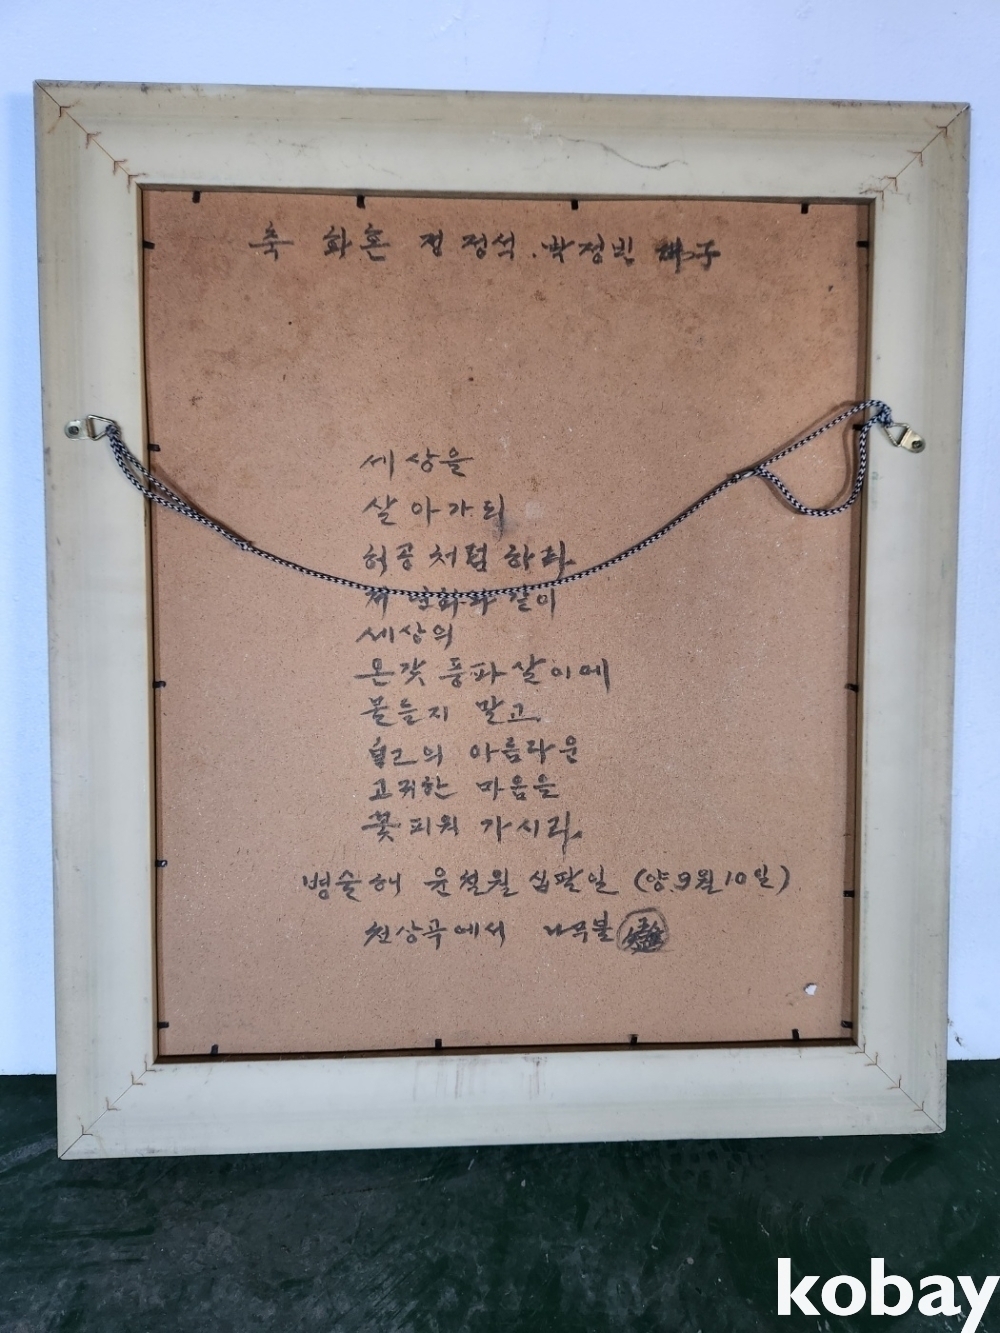 축 화혼 정 정석 · 박정빈 佛子
세상을
살아가되
허공처럼 하라.
저 연화와 같이
세상의
온갖 풍파살이에
물들지 말고,
自己의 아름다운
고귀한 마음을
꽃피워 가시라.
병술해 윤칠월 십팔일 (양.9월10일)
천상곡에서 나무불
kobay